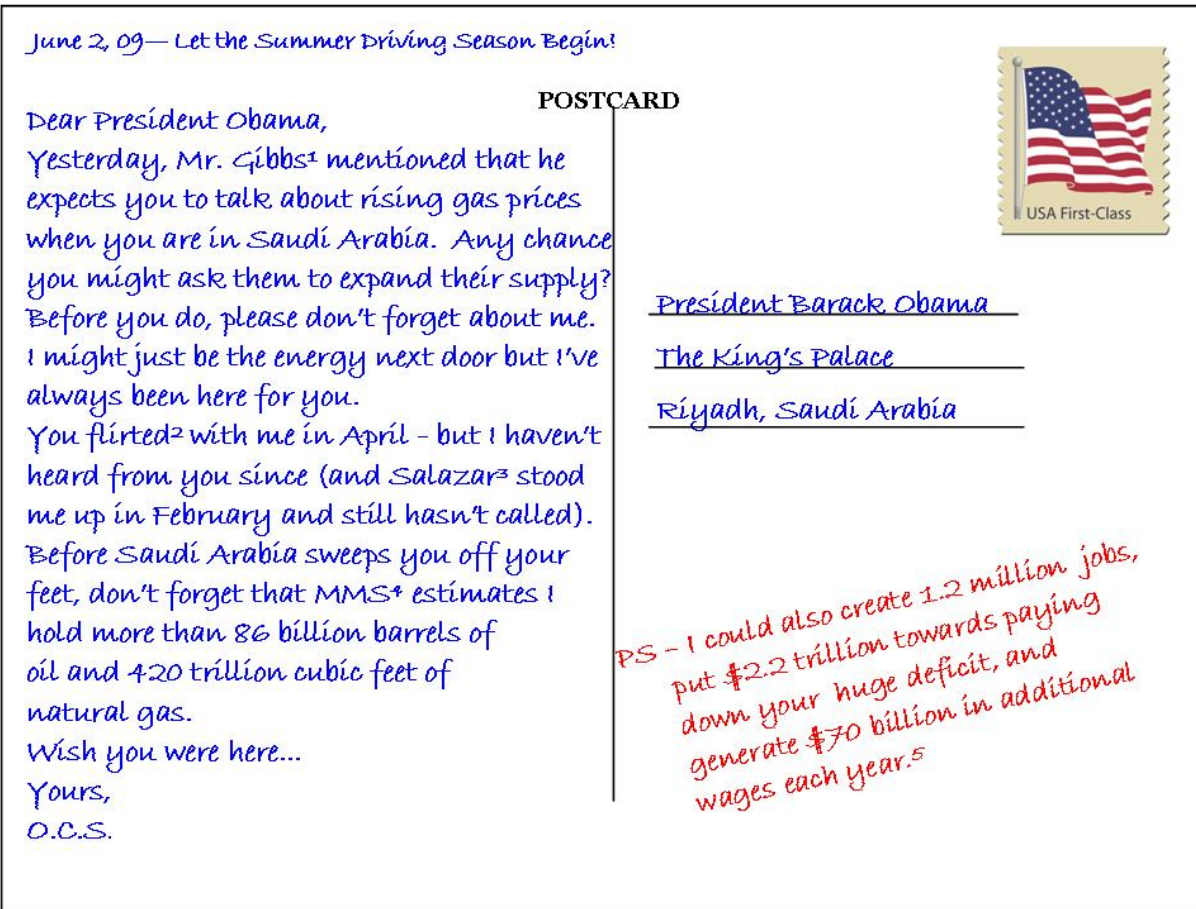 June 2, 09— Let the Summer Driving Season Begin!
POSTCARD
Dear President Obama,
Yesterday, Mr. Gibbs¹ mentioned that he
expects you to talk about rising gas prices
when you are in Saudi Arabia. Any chance
you might ask them to expand their supply?
Before you do, please don't forget about me.
I might just be the energy next door but I've
always been here for you.
You flirted² with me in April - but I haven't
heard from you since (and Salazar³ stood
me up in February and still hasn't called).
Before Saudi Arabia sweeps you off your
feet, don't forget that MMS⁴ estimates I
hold more than 86 billion barrels of
oil and 420 trillion cubic feet of
natural gas.
Wish you were here...
Yours,
O.C.S.
USA First-Class
President Barack Obama
The King's Palace
Riyadh, Saudi Arabia
PS - I could also create 1.2 million jobs,
put $2.2 trillion towards paying
down your huge deficit, and
generate $70 billion in additional
wages each year.⁵